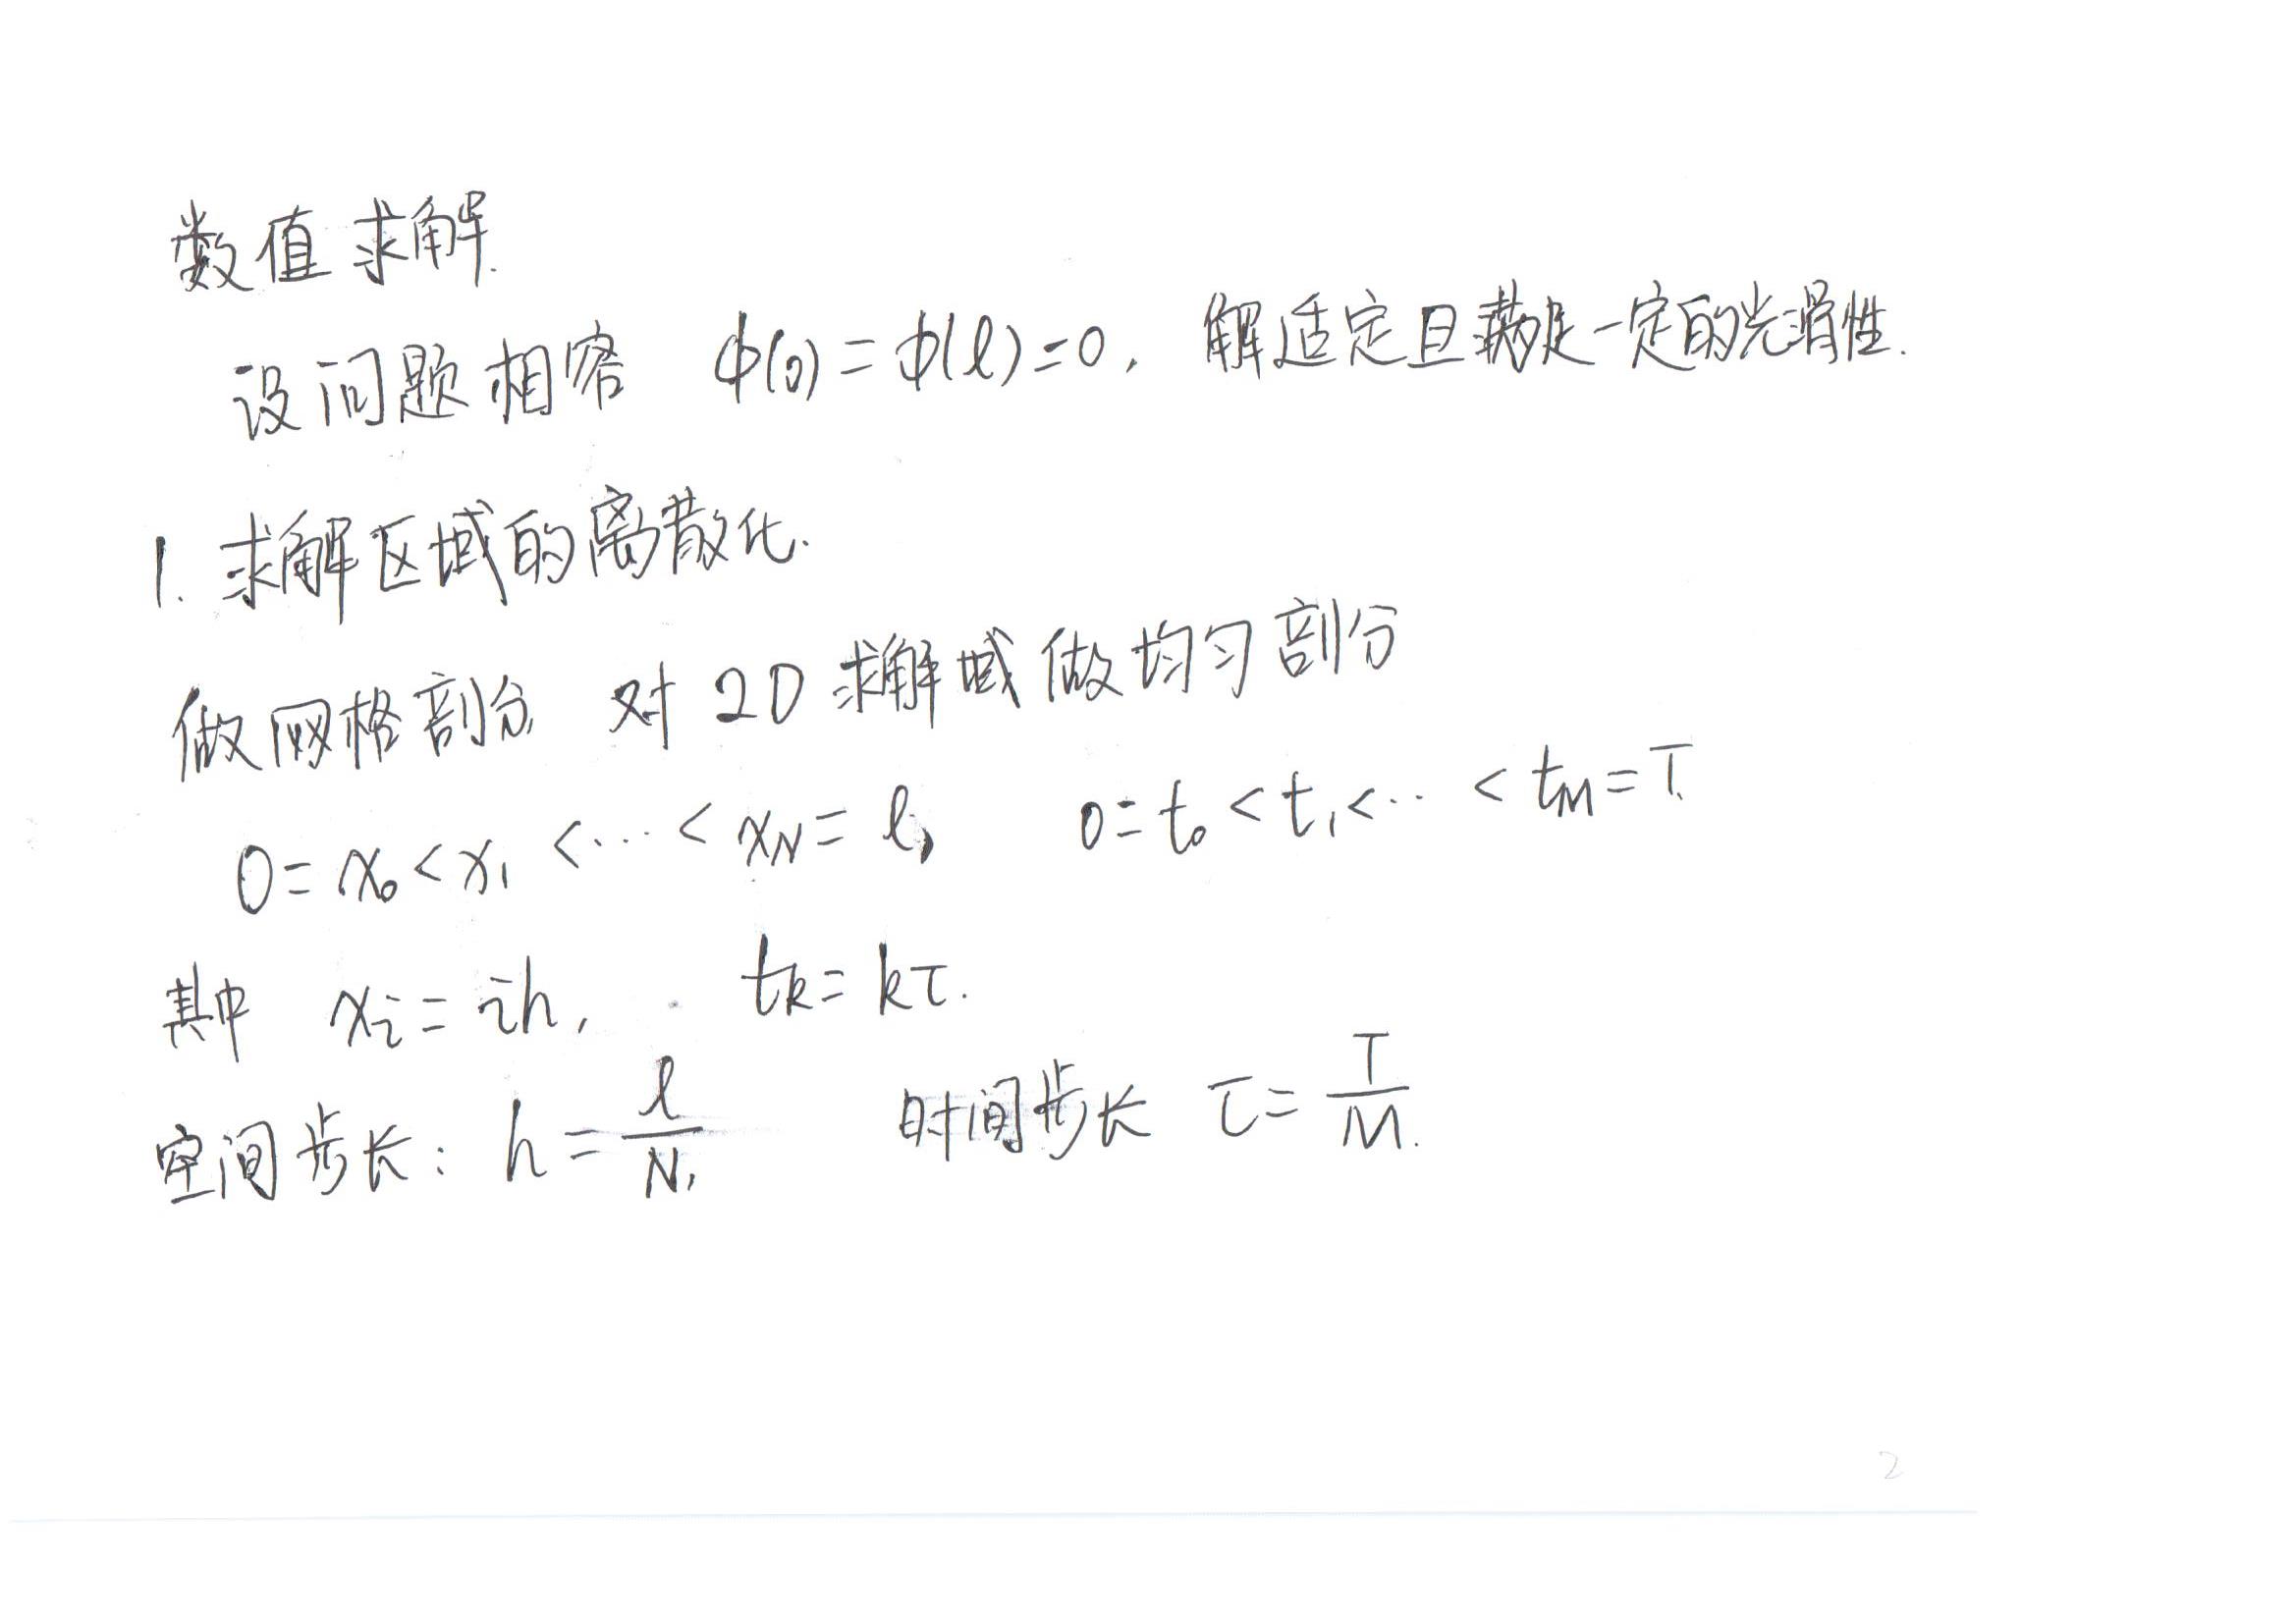 数值求解.
设问题相容 φ(0)=φ(l)=0, 解适定且满足一定的光滑性.
1. 求解区域的离散化.
做网格剖分, 对2D求解域做均匀剖分
0=x₀<x₁<…<x_N=l, 0=t₀<t₁<…<t_M=T.
其中 xᵢ=ih, t_k=kτ.
空间步长: h=l/N, 时间步长 τ=T/M.
2